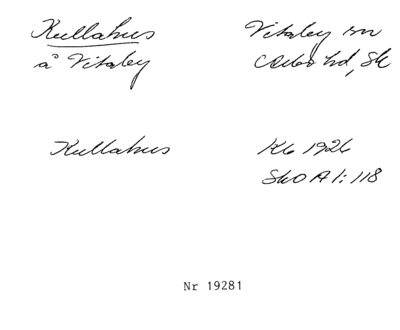 Kullahus
å Vitaby
Vitaby sn
Albo hd, Sk
Kullahus
Kb 1926
SkO A 1:118
Nr 19281